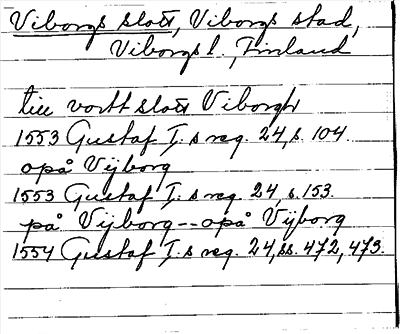 Viborgs slott, Viborgs stad,
Viborgs l., Finland
till vortt slott Viborgh
1553 Gustaf I:s reg. 24, s. 104.
opå Vijborg
1553 Gustaf I:s reg. 24, s. 153.
på Vijborg -- opå Vijborg
1554 Gustaf I:s reg. 24, ss. 472, 473.